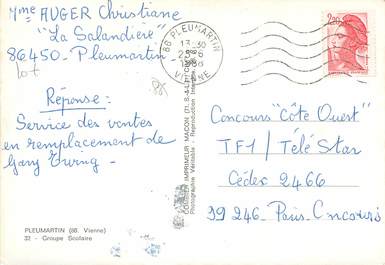 Mme AUGER Christiane
"La Salandière"
86450 - Pleumartin
lot
Réponse :
Service des ventes
en remplacement de
Gary
86 PLEUMARTIN
VIENNE
2,20
Concours "Côte Ouest"
TF1 / Télé Star
Cédex 2466
99 246 - Paris Concours
PLEUMARTIN (86. Vienne)
32 - Groupe Scolaire
Photographie Véritable - Reproduction Interdite